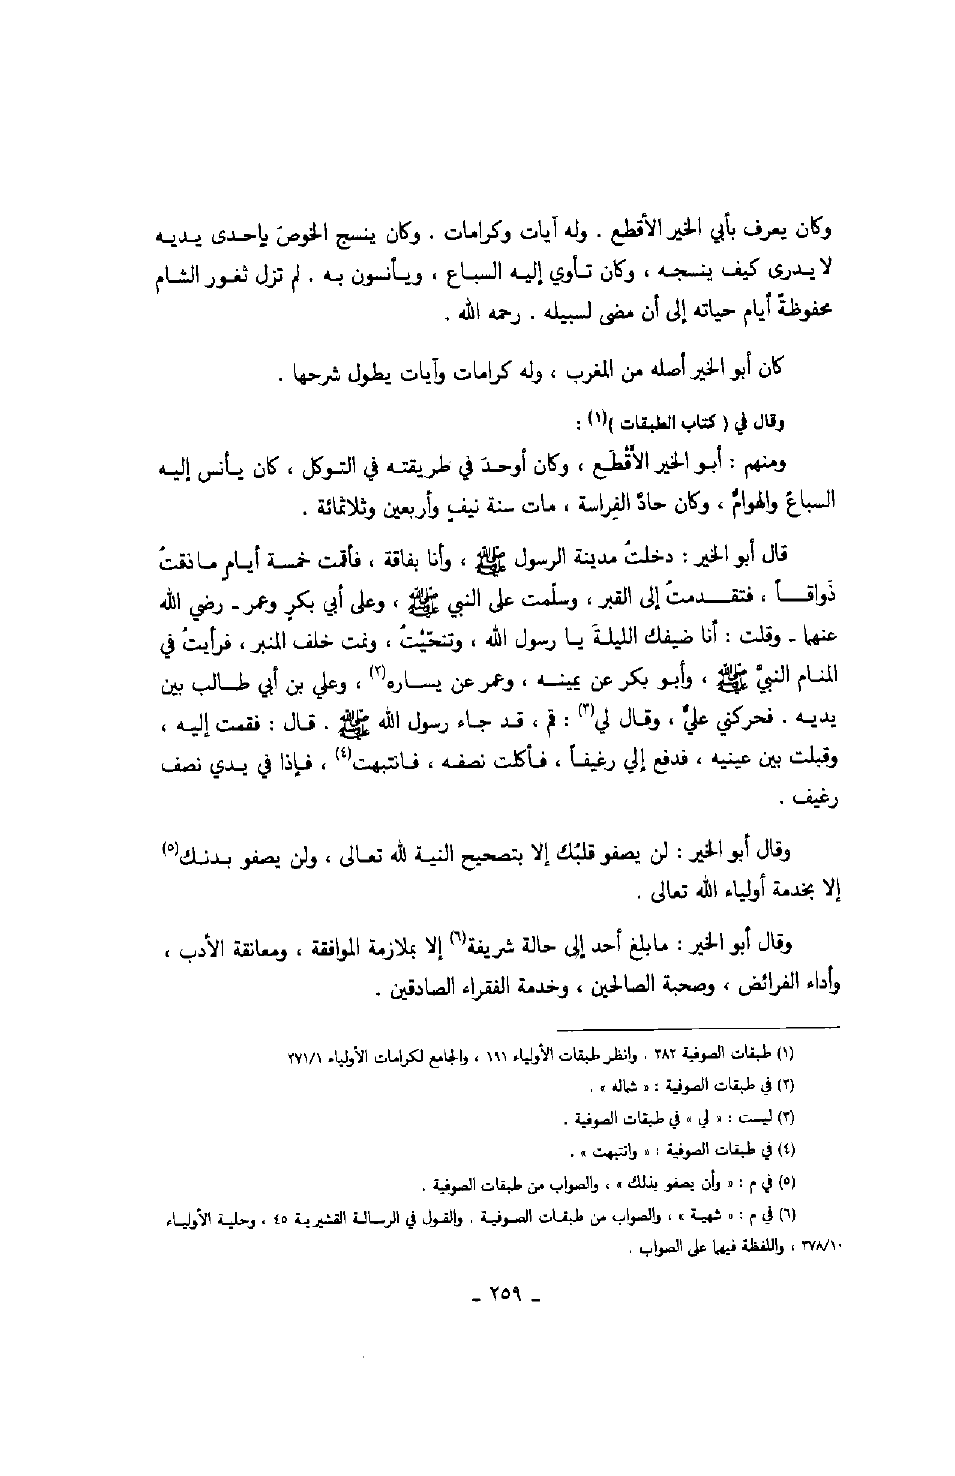 وكان يعرف بأبي الخير الأقطع . وله آيات وكرامات . وكان ينسج الخوصَ بإحدى يديه
لا يدرى كيف ينسجه ، وكان تأوي إليه السباع ، ويأنسون به . لم تزل ثغور الشام
محفوظةً أيام حياته إلى أن مضى لسبيله . رحمه الله .
كان أبو الخير أصله من المغرب ، وله كرامات وآيات يطول شرحها .
وقال في ( كتاب الطبقات )(١) :
ومنهم : أبو الخير الأقْطَع ، وكان أوحدَ في طريقته في التوكل ، كان يأنس إليه
السباعُ والهوامُّ ، وكان حادَّ الفِراسة ، مات سنة نيفٍ وأربعين وثلاثمائة .
قال أبو الخير : دخلتُ مدينة الرسول ﷺ ، وأنا بفاقة ، فأقمت خمسة أيام ماذقتُ
ذَواقاً ، فتقدمتُ إلى القبر ، وسلّمت على النبي ﷺ ، وعلى أبي بكرٍ وعمر - رضي الله
عنهما - وقلت : أنا ضيفك الليلةَ يا رسول الله ، وتنحّيْتُ ، ونمت خلف المنبر ، فرأيتُ في
المنام النبيَّ ﷺ ، وأبو بكر عن يمينه ، وعمر عن يساره(٢) ، وعلي بن أبي طالب بين
يديه . فحركني عليٌّ ، وقال لي(٣) : قم ، قد جاء رسول الله ﷺ . قال : فقمت إليه ،
وقبلت بين عينيه ، فدفع إلي رغيفاً ، فأكلت نصفه ، فانتبهت(٤) ، فإذا في يدي نصف
رغيف .
وقال أبو الخير : لن يصفو قلبُك إلا بتصحيح النية لله تعالى ، ولن يصفو بدنك(٥)
إلا بخدمة أولياء الله تعالى .
وقال أبو الخير : مابلغ أحد إلى حالة شريفة(٦) إلا بملازمة الموافقة ، ومعانقة الأدب ،
وأداء الفرائض ، وصحبة الصالحين ، وخدمة الفقراء الصادقين .
(١) طبقات الصوفية ٣٨٢ . وانظر طبقات الأولياء ١٩١ ، والجامع لكرامات الأولياء ٢٧١/١
(٢) في طبقات الصوفية : « شماله » .
(٣) ليست : « لي » في طبقات الصوفية .
(٤) في طبقات الصوفية : « وانتبهت » .
(٥) في م : « وأن يصفو بذلك » ، والصواب من طبقات الصوفية .
(٦) في م : « شهية » ، والصواب من طبقات الصوفية . والقول في الرسالة القشيرية ٤٥ ، وحلية الأولياء
٣٧٨/١٠ ، واللفظة فيهما على الصواب .
- ٢٥٩ -